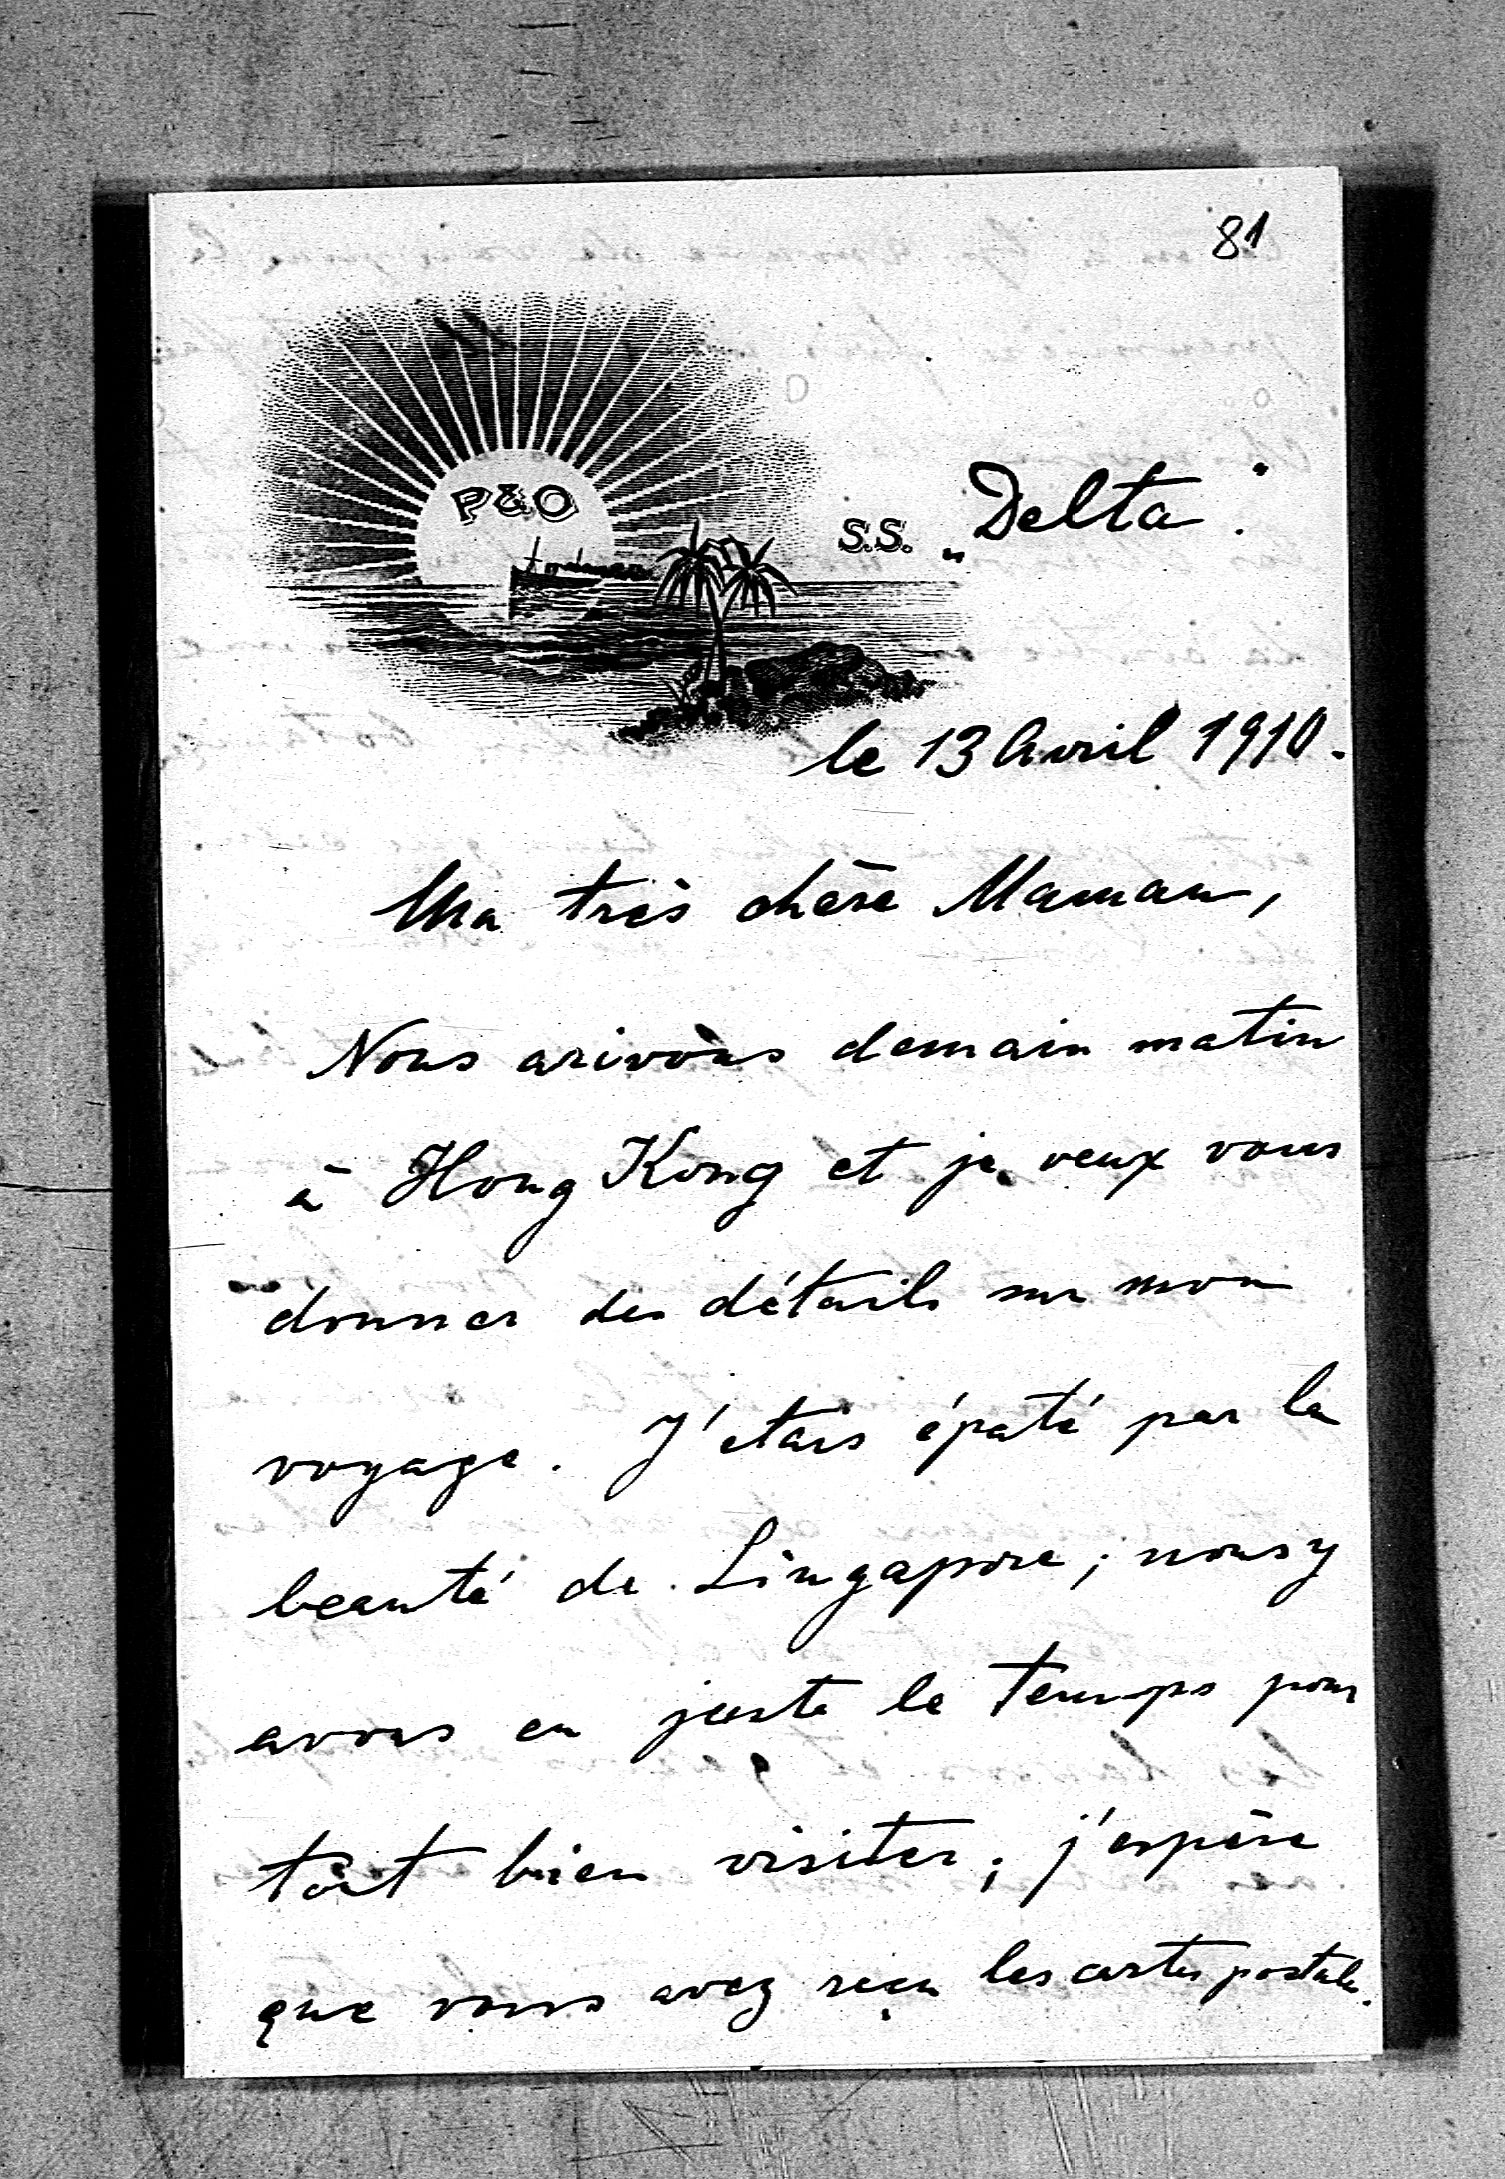 81
P&O
S.S. „Delta".
le 13 Avril 1910.
Ma très chère Maman,
Nous arivons demain matin
à Hong Kong et je veux vous
donner des détails sur mon
voyage. J'étais épaté par la
beauté de Singapore; nous y
avons eu juste le temps pour
tout bien visiter; j'espère
que vous avez reçu les cartes postales.